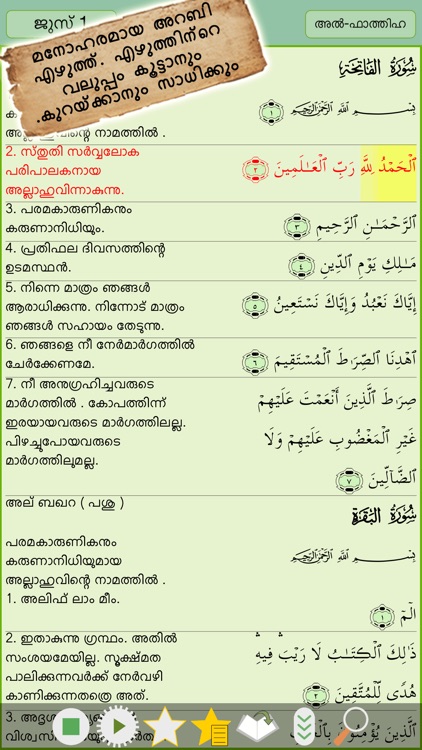 ജുസ് 1
അൽ-ഫാത്തിഹ
മനോഹരമായ അറബി
എഴുത്ത്. എഴുത്തിന്റെ
വലുപ്പം കൂട്ടാനും
.കുറയ്ക്കാനും സാധിക്കും
سُورَةُ الفَاتِحَةِ
بِسْمِ اللَّهِ الرَّحْمَٰنِ الرَّحِيمِ ١
നാമത്തിൽ .
2. സ്തുതി സർവ്വലോക
പരിപാലകനായ
അല്ലാഹുവിന്നാകുന്നു.
ٱلْحَمْدُ لِلَّهِ رَبِّ ٱلْعَـٰلَمِينَ ٢
3. പരമകാരുണികനും
കരുണാനിധിയും.
ٱلرَّحْمَـٰنِ ٱلرَّحِيمِ ٣
4. പ്രതിഫല ദിവസത്തിന്റെ
ഉടമസ്ഥൻ.
مَـٰلِكِ يَوْمِ ٱلدِّينِ ٤
5. നിന്നെ മാത്രം ഞങ്ങൾ
ആരാധിക്കുന്നു. നിന്നോട് മാത്രം
ഞങ്ങൾ സഹായം തേടുന്നു.
إِيَّاكَ نَعْبُدُ وَإِيَّاكَ نَسْتَعِينُ ٥
6. ഞങ്ങളെ നീ നേർമാർഗത്തിൽ
ചേർക്കേണമേ.
ٱهْدِنَا ٱلصِّرَٰطَ ٱلْمُسْتَقِيمَ ٦
7. നീ അനുഗ്രഹിച്ചവരുടെ
മാർഗത്തിൽ . കോപത്തിന്
ഇരയായവരുടെ മാർഗത്തിലല്ല.
പിഴച്ചുപോയവരുടെ
മാർഗത്തിലുമല്ല.
صِرَٰطَ ٱلَّذِينَ أَنْعَمْتَ عَلَيْهِمْ
غَيْرِ ٱلْمَغْضُوبِ عَلَيْهِمْ وَلَا
ٱلضَّآلِّينَ ٧
അല് ബഖറ ( പശു )
سُورَةُ البَقَرَةِ
പരമകാരുണികനും
കരുണാനിധിയുമായ
അല്ലാഹുവിന്റെ നാമത്തിൽ .
بِسْمِ اللَّهِ الرَّحْمَٰنِ الرَّحِيمِ
1. അലിഫ് ലാം മീം.
الٓمٓ ١
2. ഇതാകുന്നു ഗ്രന്ഥം. അതിൽ
സംശയമേയില്ല. സൂക്ഷ്മത
പാലിക്കുന്നവർക്ക് നേർവഴി
കാണിക്കുന്നതത്രെ അത്.
ذَٰلِكَ ٱلْكِتَـٰبُ لَا رَيْبَ ۛ فِيهِ ۛ
هُدًى لِّلْمُتَّقِينَ ٢
3.
ٱلَّذِينَ يُؤْمِنُونَ